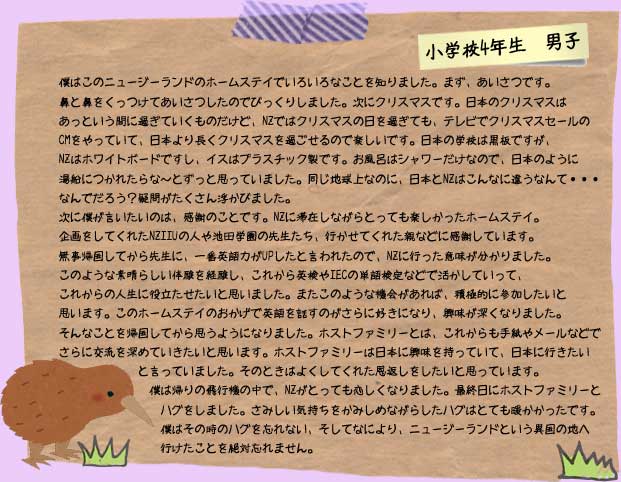 小学校4年生　男子
僕はこのニュージーランドのホームステイでいろいろなことを知りました。まず、あいさつです。
鼻と鼻をくっつけてあいさつしたのでびっくりしました。次にクリスマスです。日本のクリスマスは
あっという間に過ぎていくものだけど、NZではクリスマスの日を過ぎても、テレビでクリスマスセールの
CMをやっていて、日本より長くクリスマスを過ごせるので楽しいです。日本の学校は黒板ですが、
NZはホワイトボードですし、イスはプラスチック製です。お風呂はシャワーだけなので、日本のように
湯船につかれたらな〜とずっと思っていました。同じ地球上なのに、日本とNZはこんなに違うなんて・・・
なんでだろう?疑問がたくさん浮かびました。
次に僕が言いたいのは、感謝のことです。NZに滞在しながらとっても楽しかったホームステイ。
企画をしてくれたNZIIUの人や池田学園の先生たち、行かせてくれた親などに感謝しています。
無事帰国してから先生に、一番英語力がUPしたと言われたので、NZに行った意味が分かりました。
このような素晴らしい体験を経験し、これから英検やIECの単語検定などで活かしていって、
これからの人生に役立たせたいと思いました。またこのような機会があれば、積極的に参加したいと
思います。このホームステイのおかげで英語を話すのがさらに好きになり、興味が深くなりました。
そんなことを帰国してから思うようになりました。ホストファミリーとは、これからも手紙やメールなどで
さらに交流を深めていきたいと思います。ホストファミリーは日本に興味を持っていて、日本に行きたい
と言っていました。そのときはよくしてくれた恩返しをしたいと思っています。
僕は帰りの飛行機の中で、NZがとっても恋しくなりました。最終日にホストファミリーと
ハグをしました。さみしい気持ちをかみしめながらしたハグはとても暖かかったです。
僕はその時のハグを忘れない、そしてなにより、ニュージーランドという異国の地へ
行けたことを絶対忘れません。